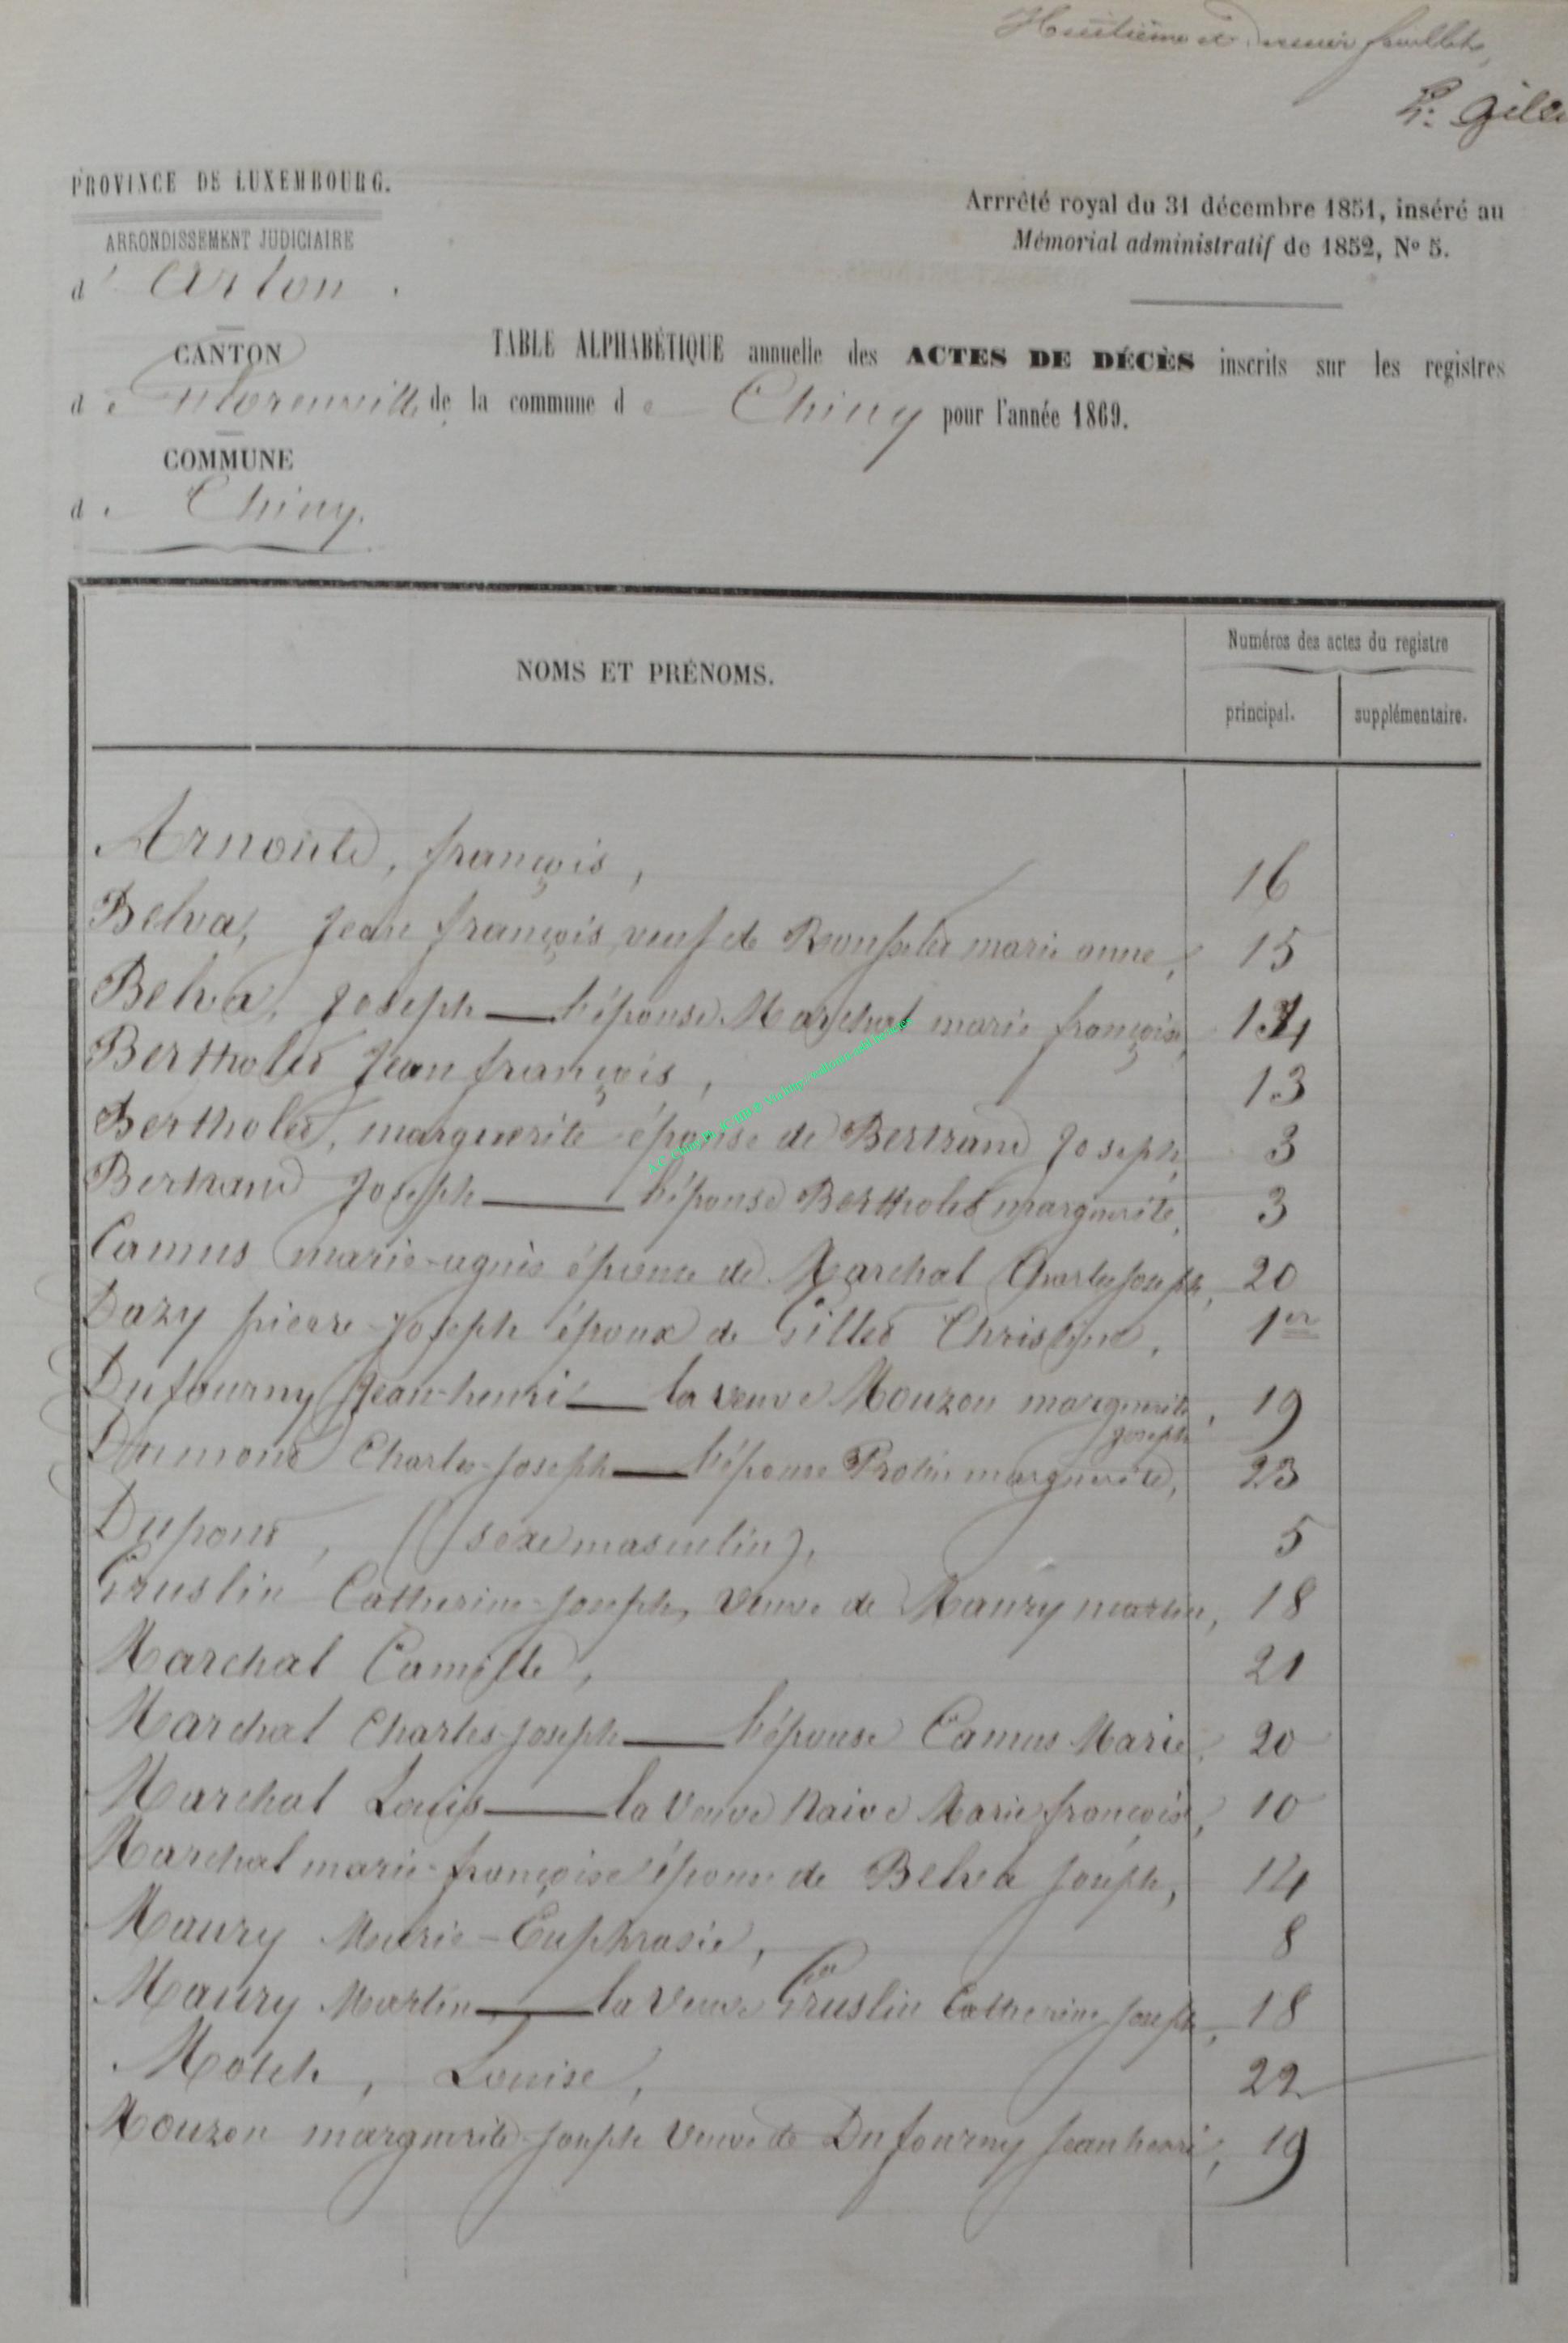 Huitième et dernier feuillet,
PROVINCE DE LUXEMBOURG.
ARRONDISSEMENT JUDICIAIRE
d' Arlon.
CANTON
de Florenville
COMMUNE
de Chiny.
Arrrêté royal du 31 décembre 1851, inséré au
Mémorial administratif de 1852, No 5.
TABLE ALPHABÉTIQUE annuelle des ACTES DE DÉCÈS inscrits sur les registres
de la commune de Chiny pour l'année 1869.
NOMS ET PRÉNOMS.
Numéros des actes du registre
principal.
supplémentaire.
Arnould, françois, 16
Belva, Jean françois veuf de marie anne, 15
Belva, Joseph — l'épouse Marchal marie françoise, 14
Bertholet Jean françois, 13
Bertholet, marguerite épouse de Bertrand Joseph, 3
Bertrand Joseph — l'épouse Bertholet marguerite, 3
Camus marie-agnès épouse de Marchal Charles Joseph, 20
Dazy pierre-Joseph époux de Gillet Christine, 1er
Dufourny Jean-henri — la veuve Mouzon marguerite joseph, 19
Dumont Charles-Joseph — l'épouse marguerite, 23
Dupont, (sexe masculin), 5
Gruslin Catherine-Joseph, veuve de Maury martin, 18
Marchal Camille, 21
Marchal Charles-Joseph — l'épouse Camus Marie, 20
Marchal Louis — la veuve Naive Marie françoise, 10
Marchal marie-françoise épouse de Belva Joseph, 14
Maury Marie-Euphrasie, 8
Maury Martin — la veuve Gruslin Catherine Joseph, 18
Motch, Louise, 22
Mouzon marguerite-Joseph veuve de Dufourny Jean henri, 19